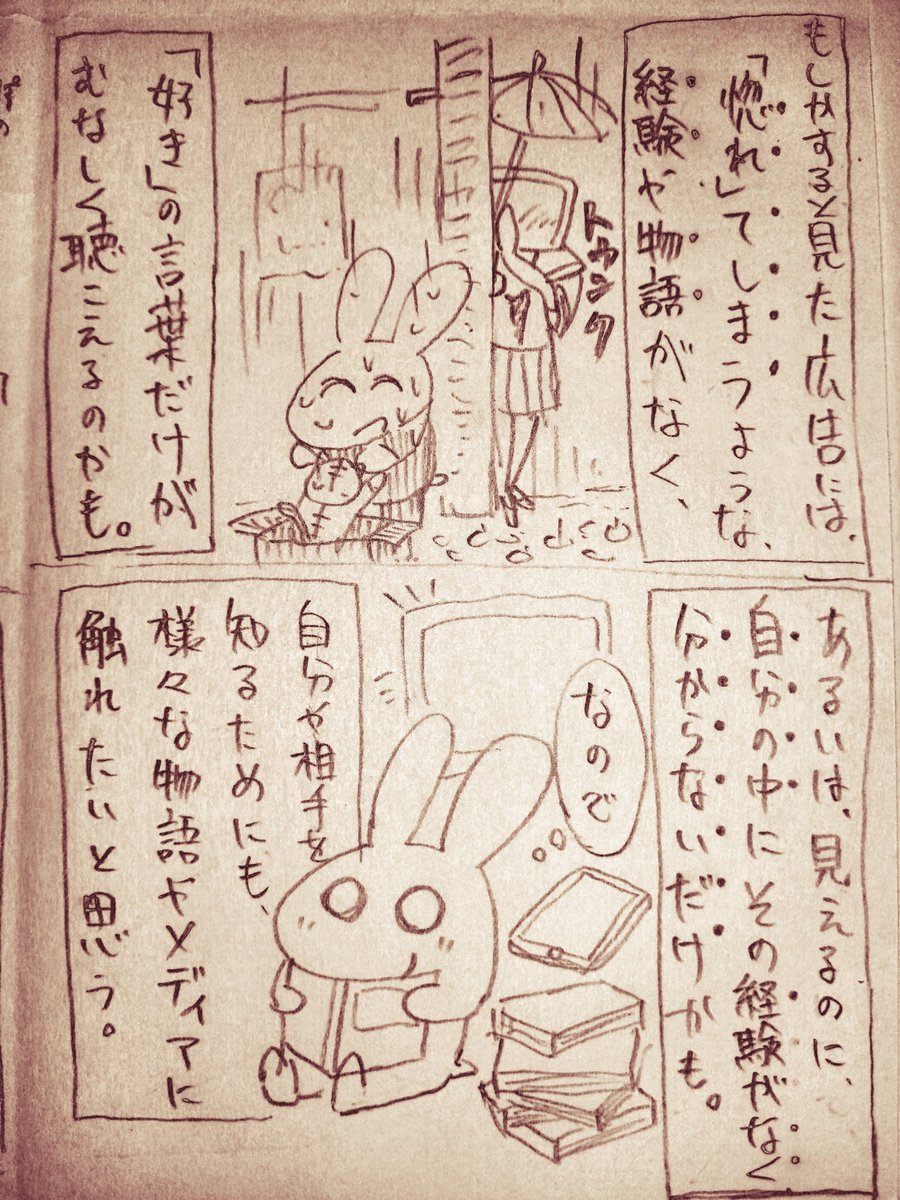 もしかすると見た広告には、
「惚れ」てしまうような、
経験や物語がなく、
トゥンク
「好き」の言葉だけが
むなしく聴こえるのかも。
あるいは、見えるのに、
自分の中にその経験がなく
分からないだけかも。
なので
自分や相手を
知るためにも、
様々な物語やメディアに
触れたいと思う。